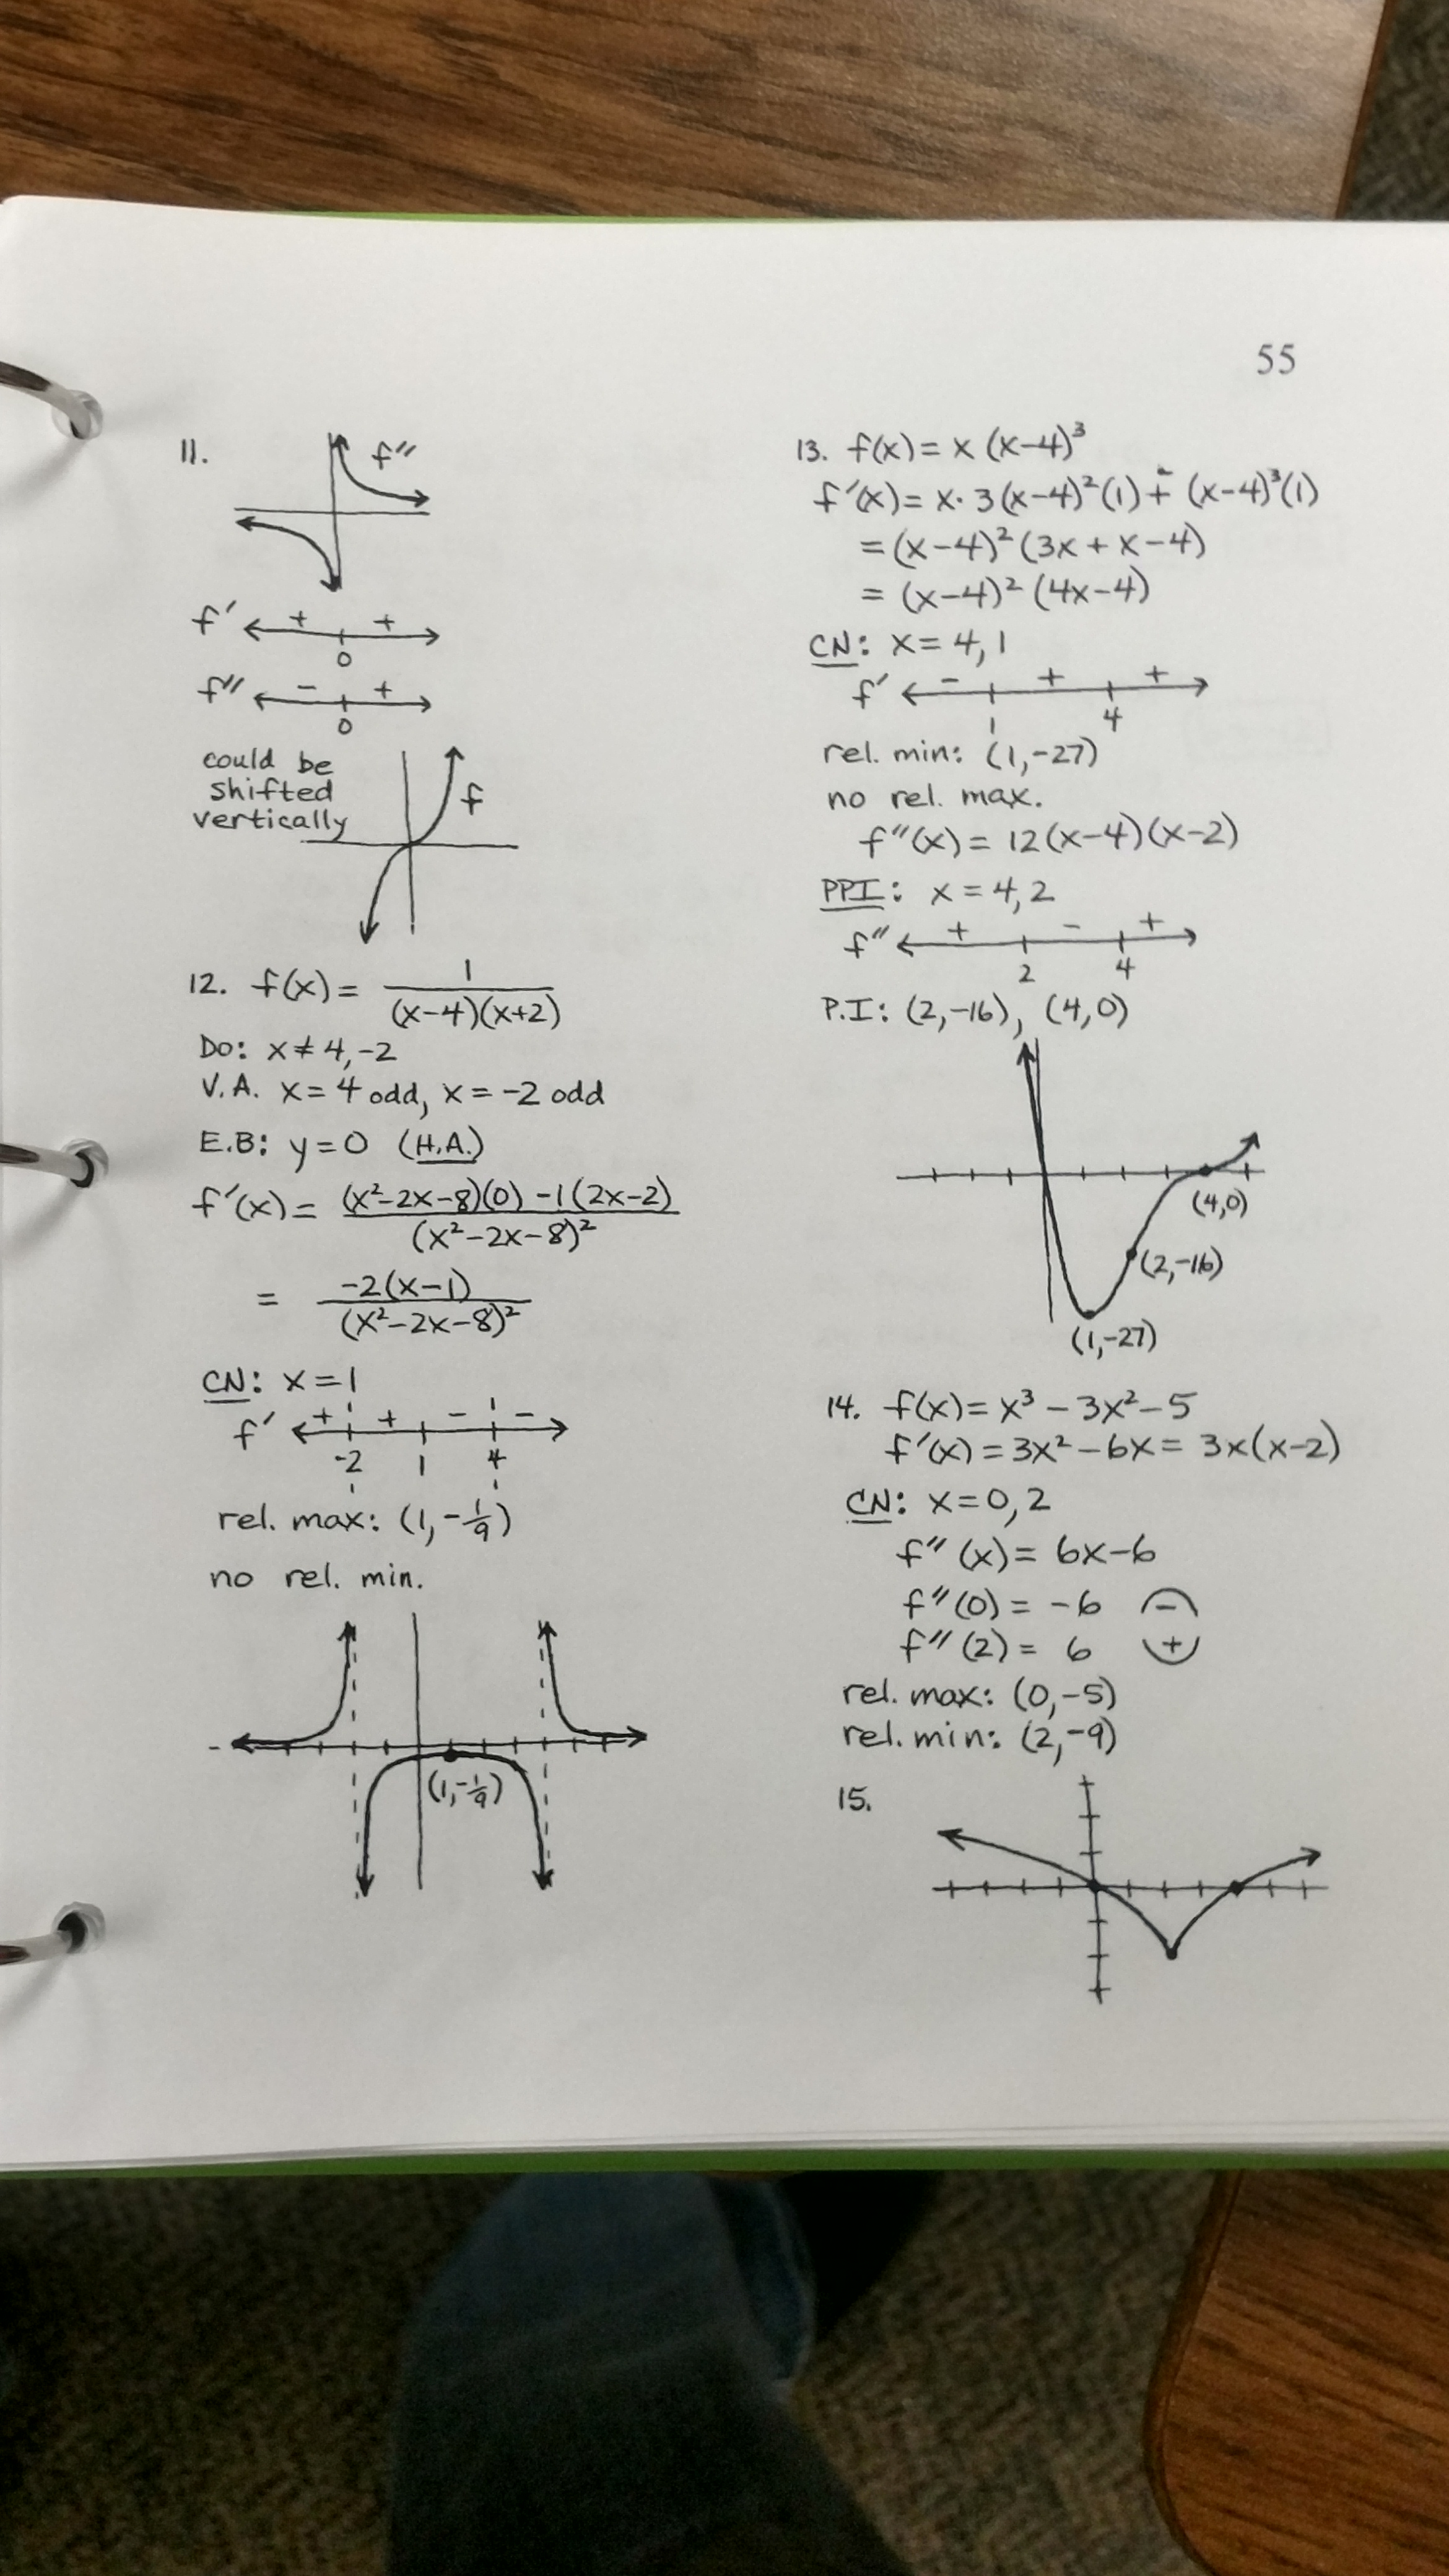 55
11.
f″
f′ + +
0
f″ − +
0
could be
shifted
vertically
f
12. f(x) = 1/((x−4)(x+2))
Do: x ≠ 4, −2
V.A. x = 4 odd, x = −2 odd
E.B: y = 0 (H.A.)
f′(x) = ((x²−2x−8)(0) − 1(2x−2))/(x²−2x−8)²
= −2(x−1)/(x²−2x−8)²
CN: x = 1
f′ + + − −
-2 1 4
rel. max: (1, −1/9)
no rel. min.
(1, −1/9)
13. f(x) = x (x−4)³
f′(x) = x · 3(x−4)²(1) + (x−4)³(1)
= (x−4)² (3x + x − 4)
= (x−4)² (4x−4)
CN: x = 4, 1
f′ − + +
1 4
rel. min: (1, −27)
no rel. max.
f″(x) = 12(x−4)(x−2)
PPI: x = 4, 2
f″ + − +
2 4
P.I: (2, −16), (4, 0)
(4,0)
(2, −16)
(1, −27)
14. f(x) = x³ − 3x² − 5
f′(x) = 3x² − 6x = 3x(x−2)
CN: x = 0, 2
f″(x) = 6x − 6
f″(0) = −6 −
f″(2) = 6 +
rel. max: (0, −5)
rel. min: (2, −9)
15.